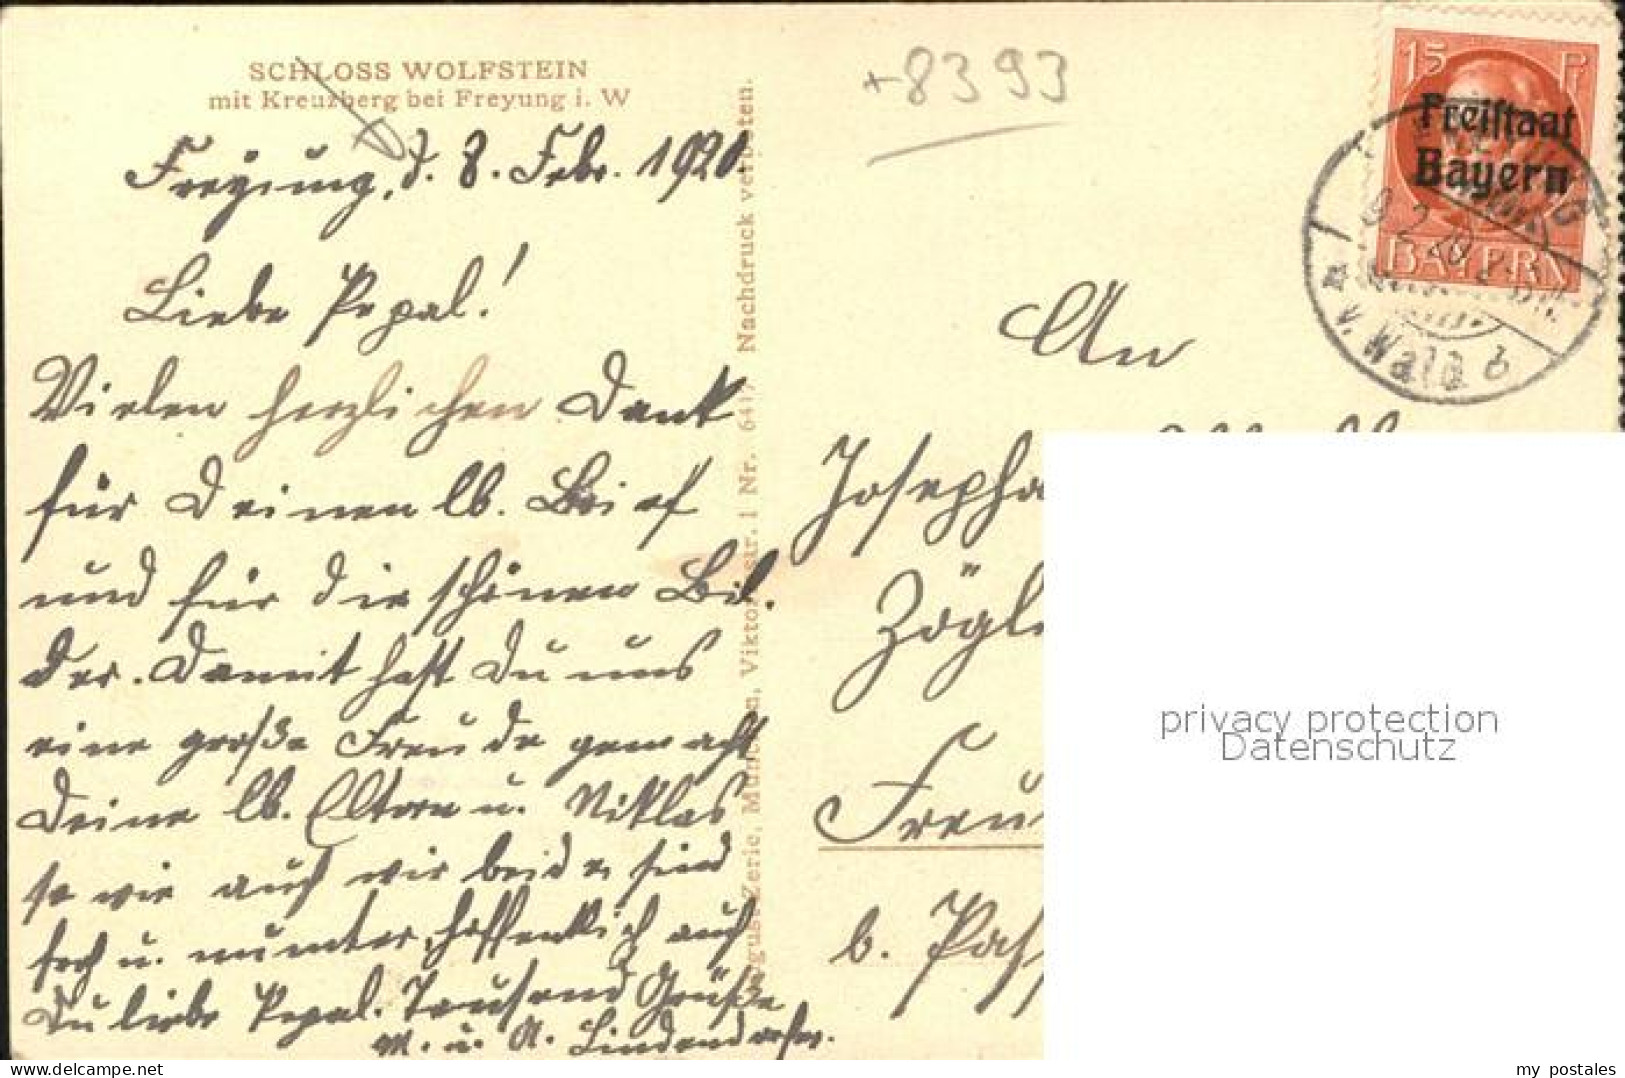 SCHLOSS WOLFSTEIN
mit Kreuzberg bei Freyung i. W
Freyung, d. 8. Febr. 1920.
Liebe Pepal!
Vielen herzlichen Dank
für Deinen lb. Brief
und für die schönen Bil-
der. Damit hast Du uns
eine große Freude gemacht
Deine lb. Eltern u. Niklas
so wie auch wir beide sind
froh u. munter, hoffentlich auch
Du liebe Pepal. Tausend Grüße
M. u. A. Lindendorfer.
August Zerle, München, Viktoriastr. 1 Nr. 6417 Nachdruck verboten.
+8393
15 P
Freistaat
Bayern
BAYERN
8 2 20
Wald b
An
Josepha
Zögl
Freu
b. Pass
privacy protection
Datenschutz
my postales